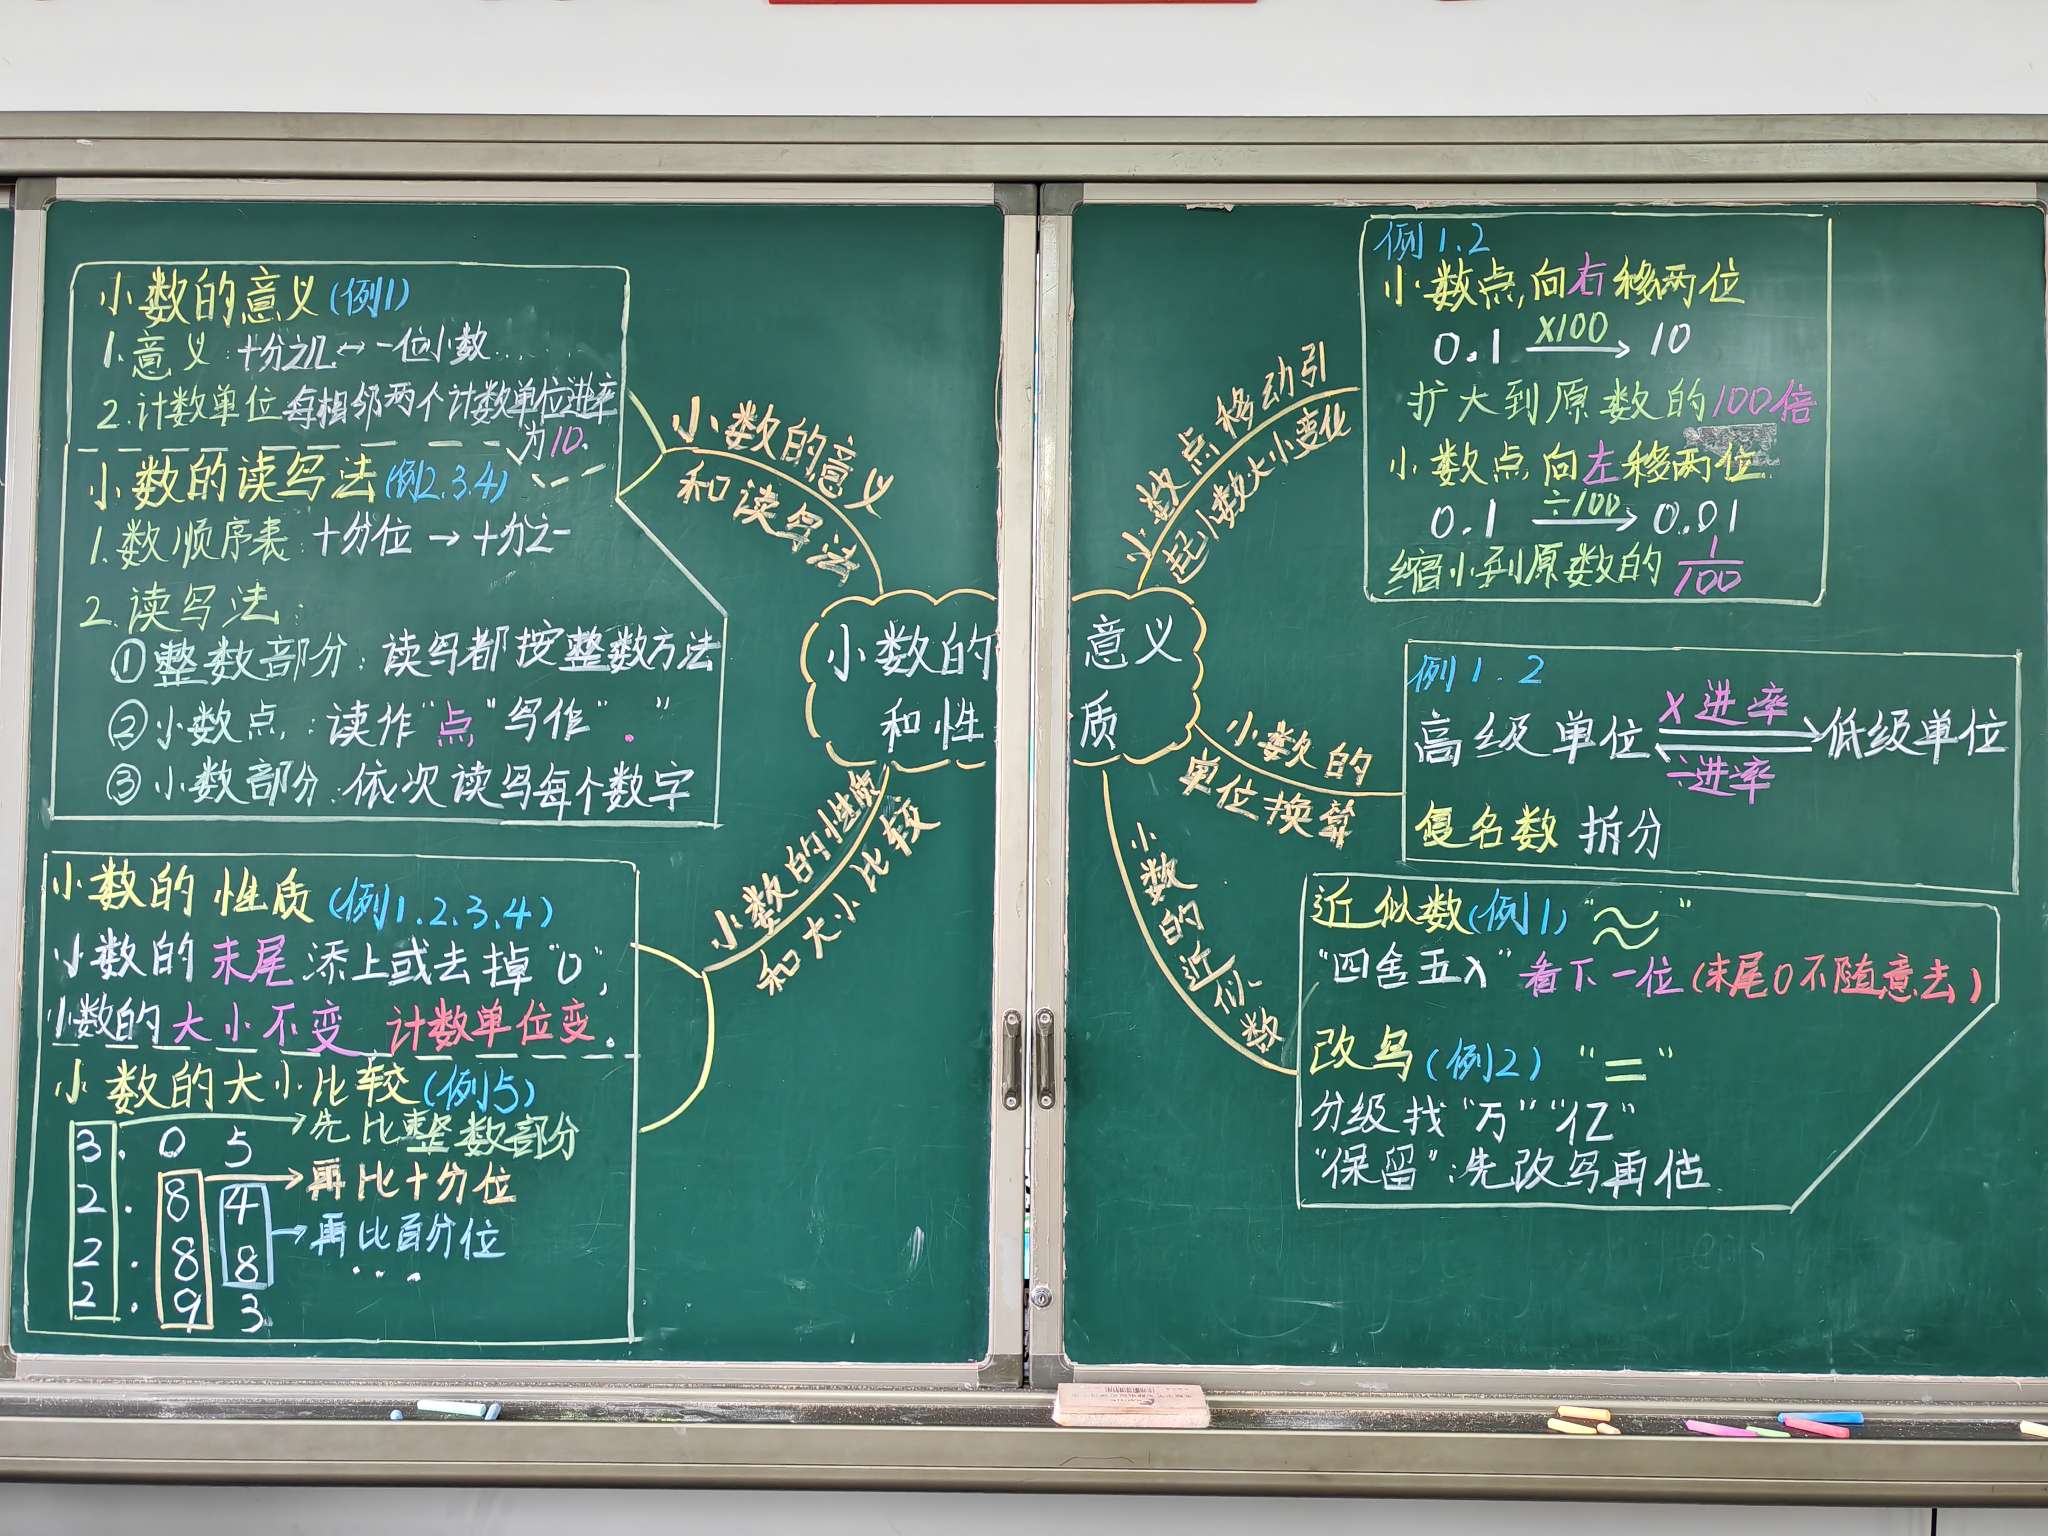 小数的意义(例1)
1.意义:十分之几↔一位小数...
2.计数单位 每相邻两个计数单位进率
为10.
小数的读写法(例2.3.4)
1.数顺序表:十分位→十分之一
2.读写法:
①整数部分:读写都按整数方法
②小数点:读作"点"写作"."
③小数部分:依次读写每个数字
小数的性质(例1.2.3.4)
小数的末尾添上或去掉"0",
小数的大小不变 计数单位变.
小数的大小比较(例5)
3.05 →先比整数部分
2.84 →再比十分位
2.88 →再比百分位
...
2.93
小数的意义
和读写法
小数的性质
和大小比较
小数的意义
和性质
小数点移动引
起小数大小变化
小数的
单位换算
小数的近似数
例1.2
小数点向右移两位
×100
0.1 → 10
扩大到原数的100倍
小数点向左移两位
÷100
0.1 → 0.01
缩小到原数的1/100
例1.2
×进率
高级单位 低级单位
÷进率
复名数 拆分
近似数(例1)"≈"
"四舍五入"看下一位(末尾0不随意去)
改写(例2) "="
分级找"万""亿"
"保留":先改写再估